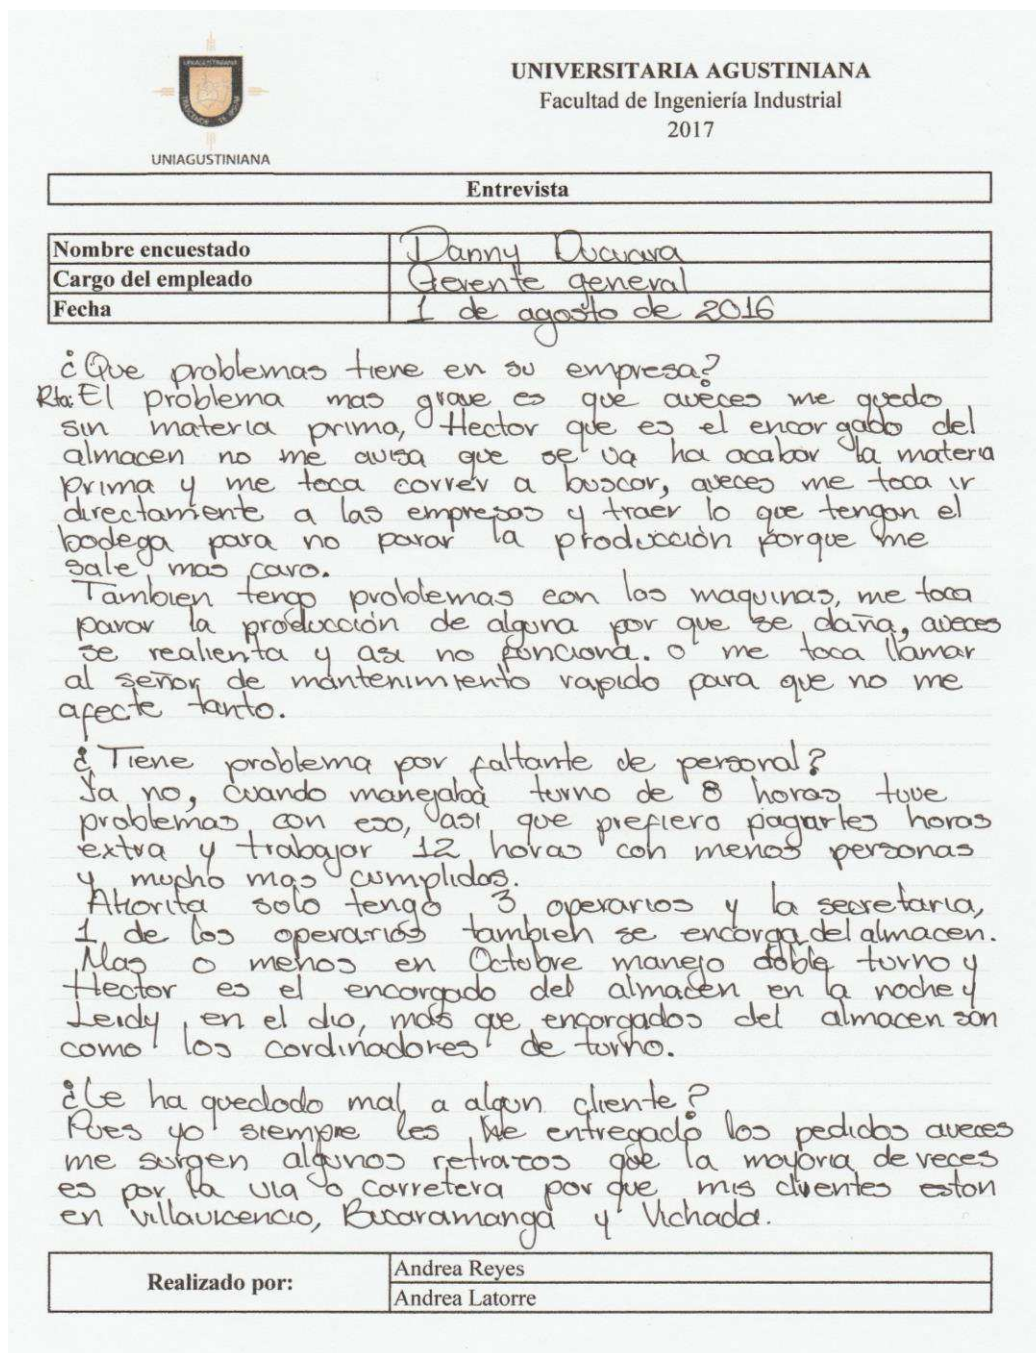 UNIVERSITARIA AGUSTINIANA
Facultad de Ingeniería Industrial
2017
UNIAGUSTINIANA
Entrevista
Nombre encuestado Danny
Cargo del empleado Gerente general
Fecha 1 de agosto de 2016
¿Que problemas tiene en su empresa?
Rta: El problema mas grave es que aveces me quedo
sin materia prima, Hector que es el encargado del
almacen no me avisa que se va ha acabar la materia
prima y me toca correr a buscar, aveces me toca ir
directamente a las empresas y traer lo que tengan el
bodega para no parar la producción porque me
sale mas caro.
Tambien tengo problemas con las maquinas, me toca
parar la producción de alguna por que se daña, aveces
se realienta y asi no funciona. o me toca llamar
al señor de mantenimiento rapido para que no me
afecte tanto.
¿Tiene problema por faltante de personal?
Ya no, cuando manejaba turno de 8 horas tuve
problemas con eso, asi que prefiero pagarles horas
extra y trabajar 12 horas con menos personas
y mucho mas cumplidas.
Ahorita solo tengo 3 operarios y la secretaria,
1 de los operarios tambien se encarga del almacen.
Mas o menos en Octubre manejo doble turno y
Hector es el encargado del almacen en la noche y
Leidy en el dia, mas que encargados del almacen son
como los cordinadores de turno.
¿Le ha quedado mal a algun cliente?
Pues yo siempre les he entregado los pedidos aveces
me surgen algunos retrazos que la mayoria de veces
es por la via o carretera por que mis clientes estan
en Villavicencio, Bucaramanga y Vichada.
Realizado por:
Andrea Reyes
Andrea Latorre